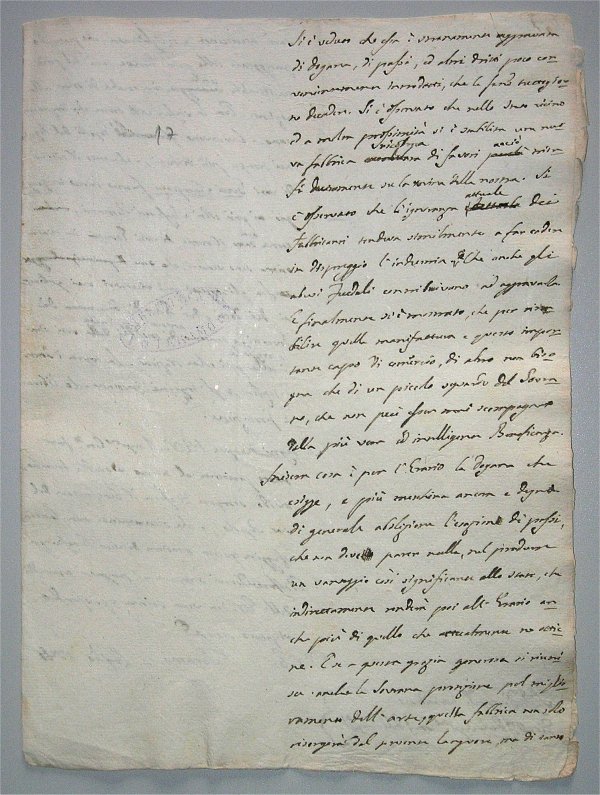 Si è veduto che essa è stranamente aggravata
di dogana, di passi, ed altri dritti poco con
venientemente introdotti, che la fanno
no decadere. Si è osservato che nello Stato vicino
ed a molta prossimità si è stabilita una nuo
va fabbrica di lavori acciò
si sicuramente su la rovina della nostra. Si
è osservato che l'ignoranza attuale dei
Fabbricanti tendeva similmente a far cadere
in dispreggio l'industria Che anche gli
abusi Feudali contribuivano ad aggravarla
E finalmente si è mostrato, che per sta
bilire quella manifattura e questo impor
tante capo di comercio, di altro non biso
gna che di un piccolo sguardo del Sovra
no, che non può esser mai scompagnato
dalla più vera ed intelligente Beneficenza.
cosa è per l'Erario la Dogana che
esigge, e più meschina ancora e degna
di generale abolizione l'esazione di passi,
che non deve parer nulla, nel produrre
un vantaggio così significante allo Stato, che
indirettamente renderà poi all'Erario an
che più di quello che attualmente ne ottie
ne. E se a questa grazia generosa si riuni
sce anche la Sovrana protezione pel miglio
ramento dell'arte, quella fabbrica non solo
risorgerà dal presente languore, ma di tanto
17